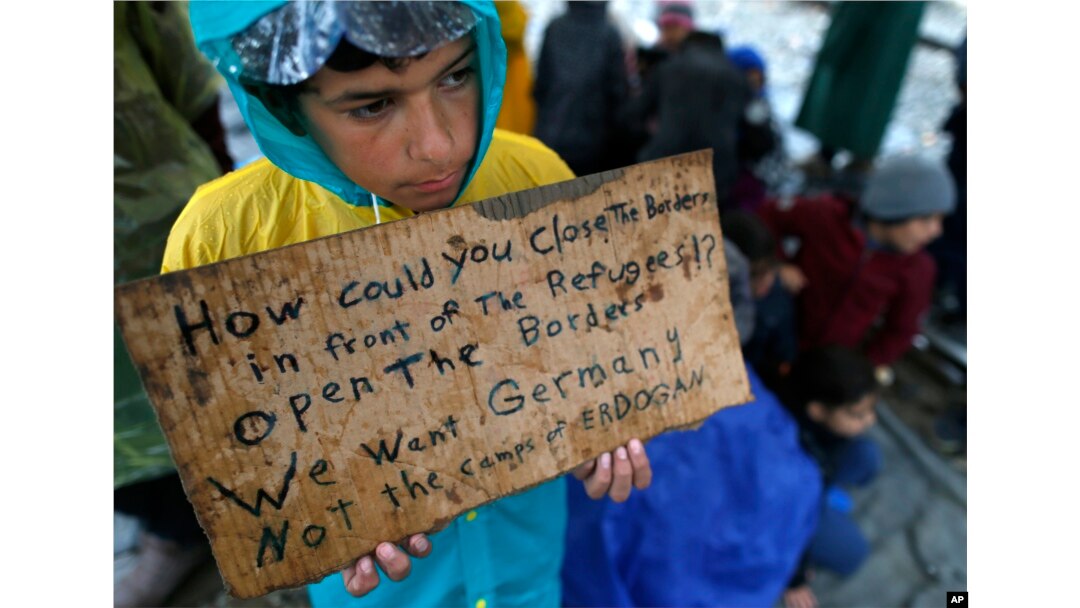 How could you Close The Borders
in front of The Refugees!?
open The Borders
We want Germany
Not the camps of ERDOGAN
AP